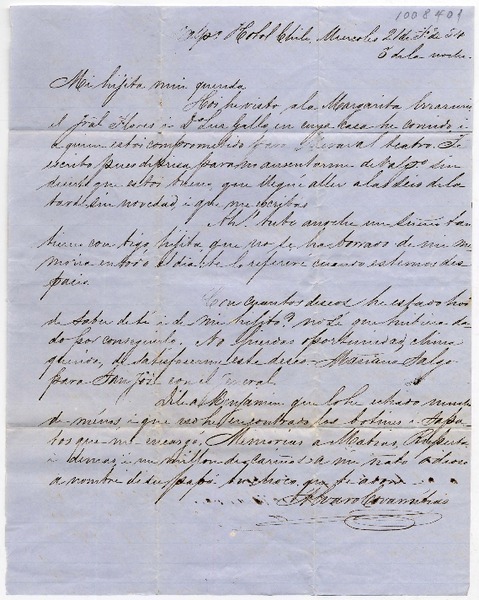 1008401
Valpo. Hotel Chile, Miercoles 21 de de 54
8 de la noche.
Mi hijita mui querida
Hoi he visto a la Margarita Errazuriz
i Da. Luz Gallo en cuya casa he comido i
a quien estoi comprometido al teatro. Te
escribo pues de prisa para no ausentarme de Valpo. sin
decirte que estoi bueno, que llegué ayer a las seis de la
tarde sin novedad, i que me escribas.
Ah! tube anoche un sueño tan
tierno contigo, hijita, que no se ha borrado de mi me
moria en todo el dia: te lo referiré cuando estemos des
pacio.
Con cuantos deseos he estado hoi
de saber de tí i de mi hijito? no sé que hubiera da
do por conseguirlo. No pierdas oportunidad, alma
querida, de satisfacerme este deseo. Mañana salgo
para San José con el
Dile a Benjamin que lo he echado mucho
de ménos, i que no he encontrado los botines i zapa
tos que me encargó. Memorias a Matias, Ruperta
i demas; i un millon de cariños a mi ñato adorado
a nombre de su papá i que te adora
Alvaro Covarrubias